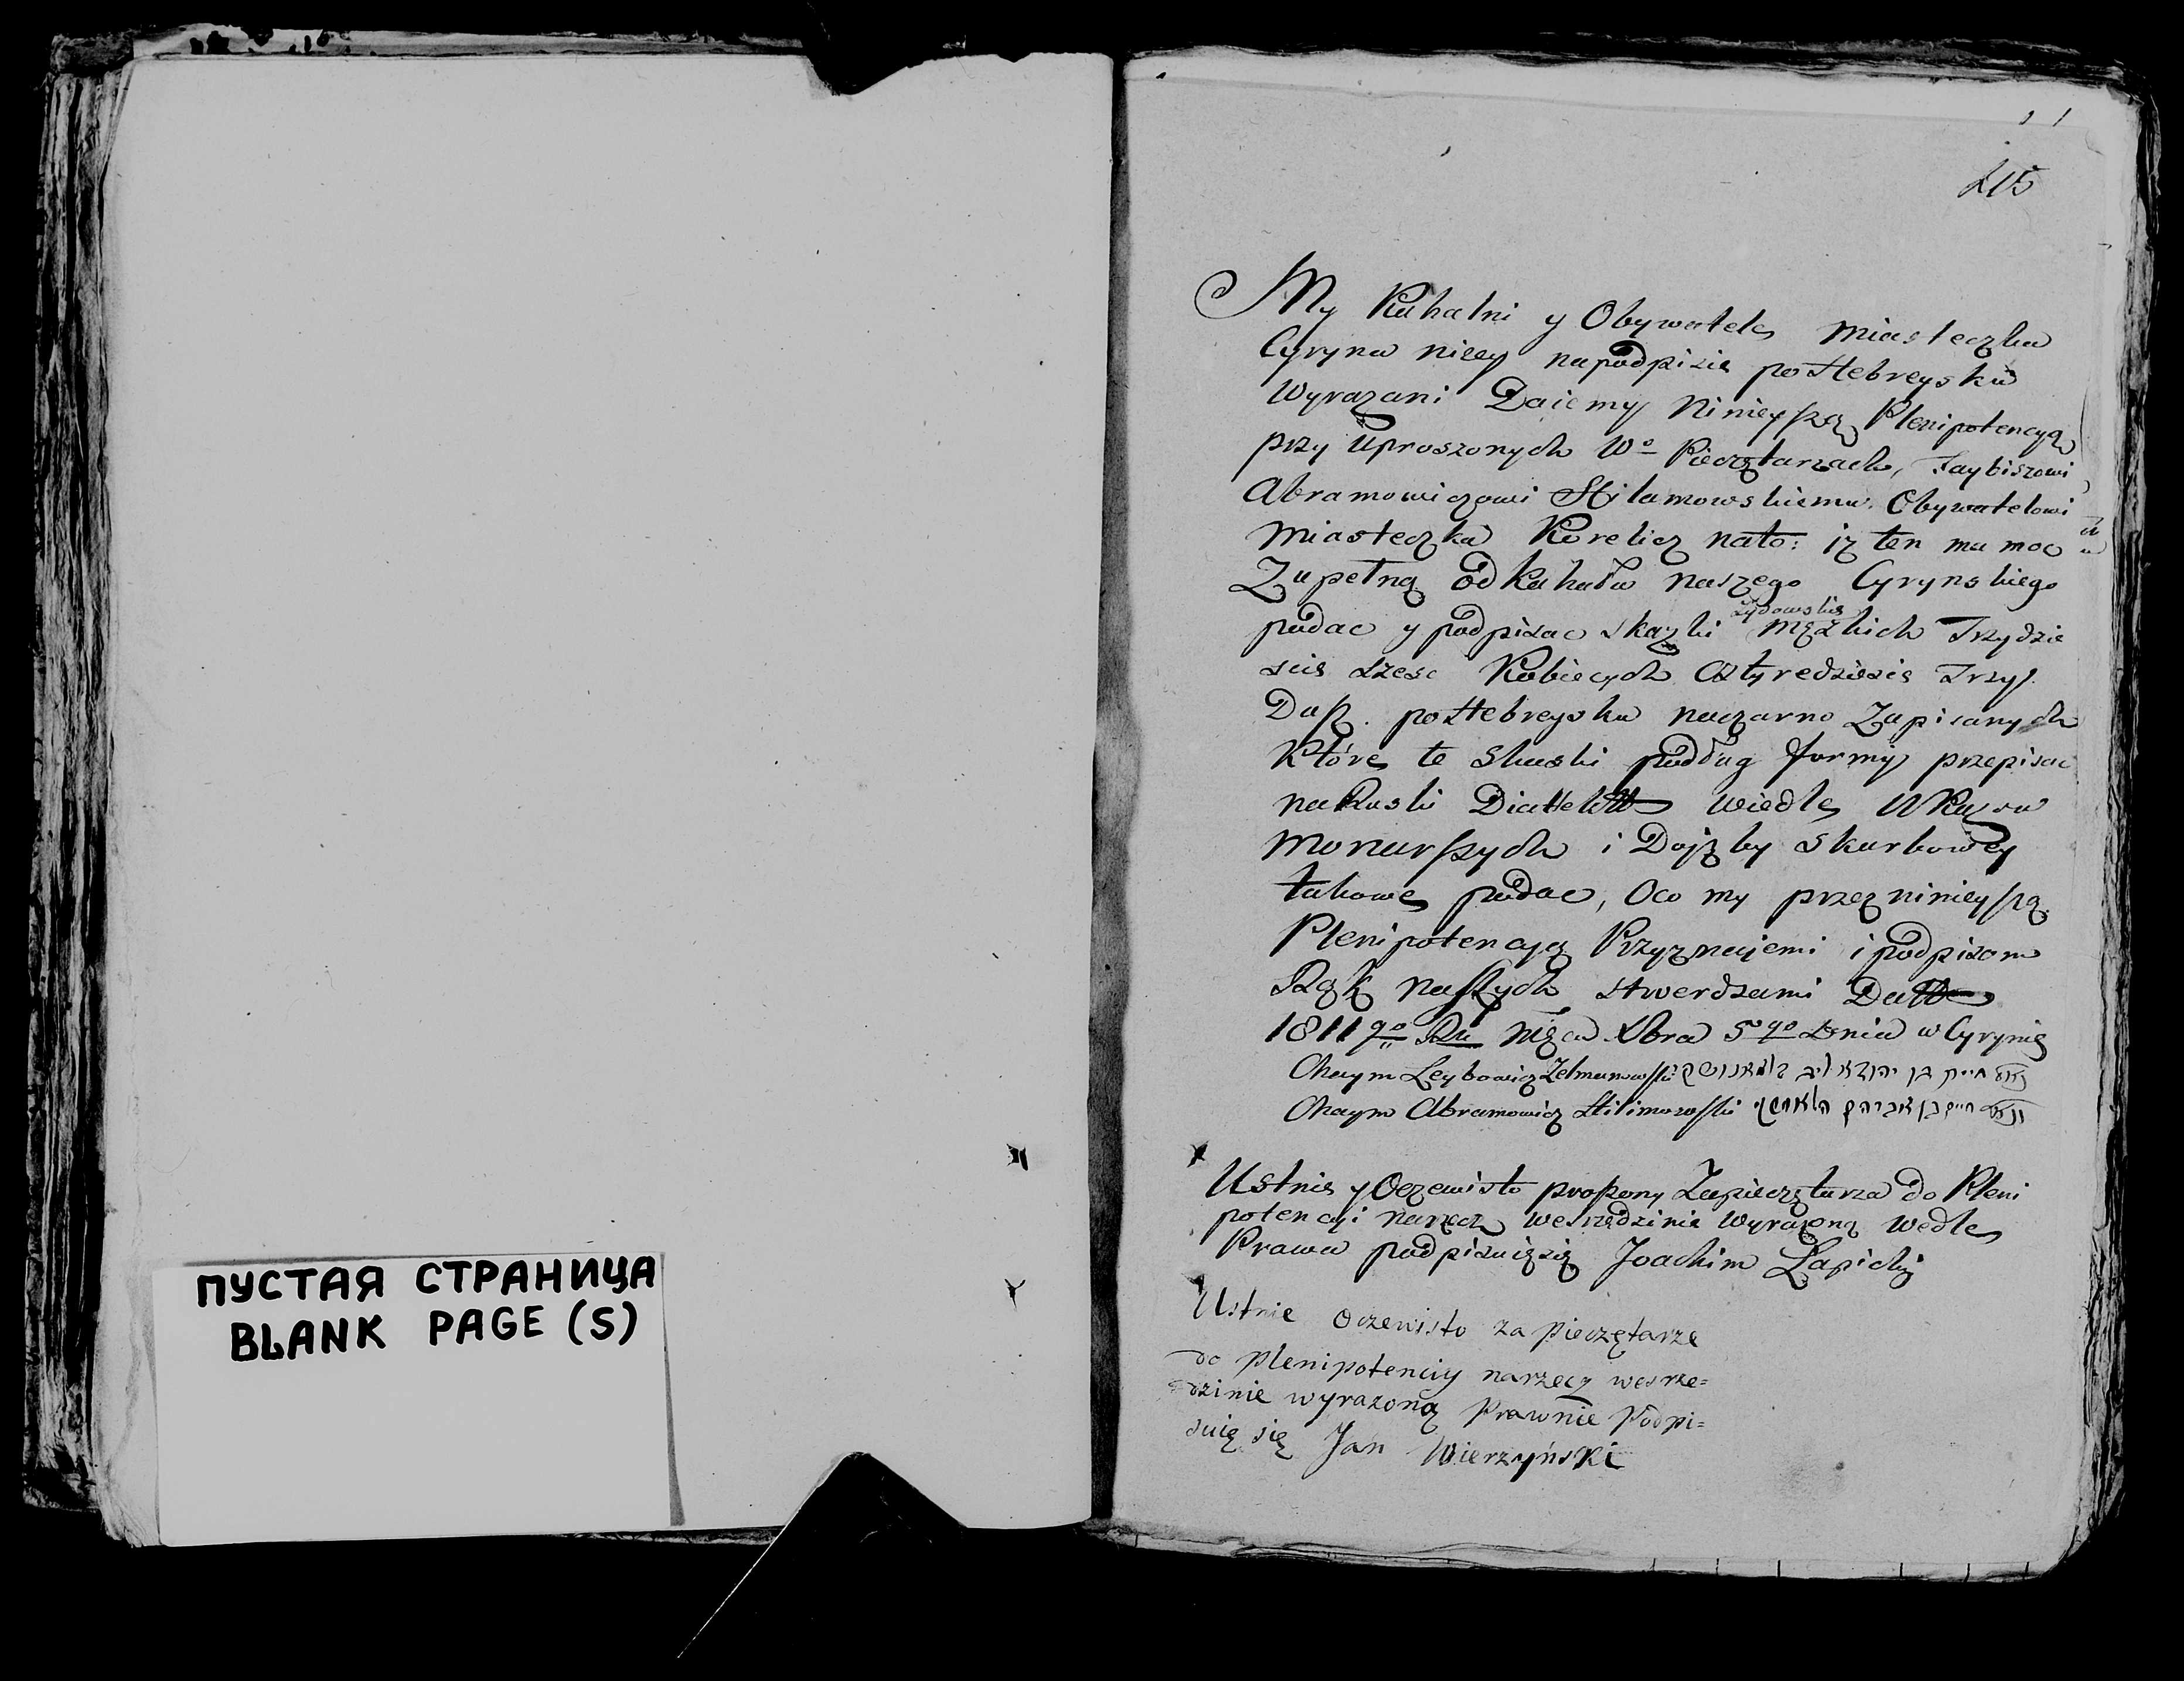 ПУСТАЯ СТРАНИЦА
BLANK PAGE (S)
415
My Kahalni y Obywatele Miasteczka
Cyryna niżey na podpisie po Hebreysku
Wyrazani Daiemy Ninieyszą Plenipotencyą
przy Uproszonych Wo Pieczętarzach,
Abramowiczowi Obywatelowi
Miasteczka Korelicz nato: iż ten ma moc
Zupełną od Kahału naszego Cyrynskiego
podac y podpisac skazki Żydowskie Męzkich Trzydzie
scie szesc Kobiecych Cztyredziescie Trzy
Dusz. po Hebreysku naczarno Zapisanych
Które te Skaski podług formy przepisac
na Ruski wiedle Ukazow
Monarszych i Skarbowey
takowe podac, Oco my przez ninieyszą
Plenipotencyą Przyznajemi i podpisom
Rąk naszych stwerdzami Datt
1811go Ru Mca Xbra 5go Dnia w Cyrynie
Chaym Leybowicz חיים בן יהודא ליב
Chaym Abramowicz חיים בן אברהם
Ustnie y Oczewisto proszony Zapieczętarza do Pleni
potencyi narzecz wesrzedzinie wyrazoną wedle
Prawa podpisuięsię Joachim Łapicki
Ustnie Oczewisto za pieczętarze
do plenipotenciy narzecz wesrze=
dzinie wyrazoną Prawnie Podpi=
suię się Jan Wierzyński